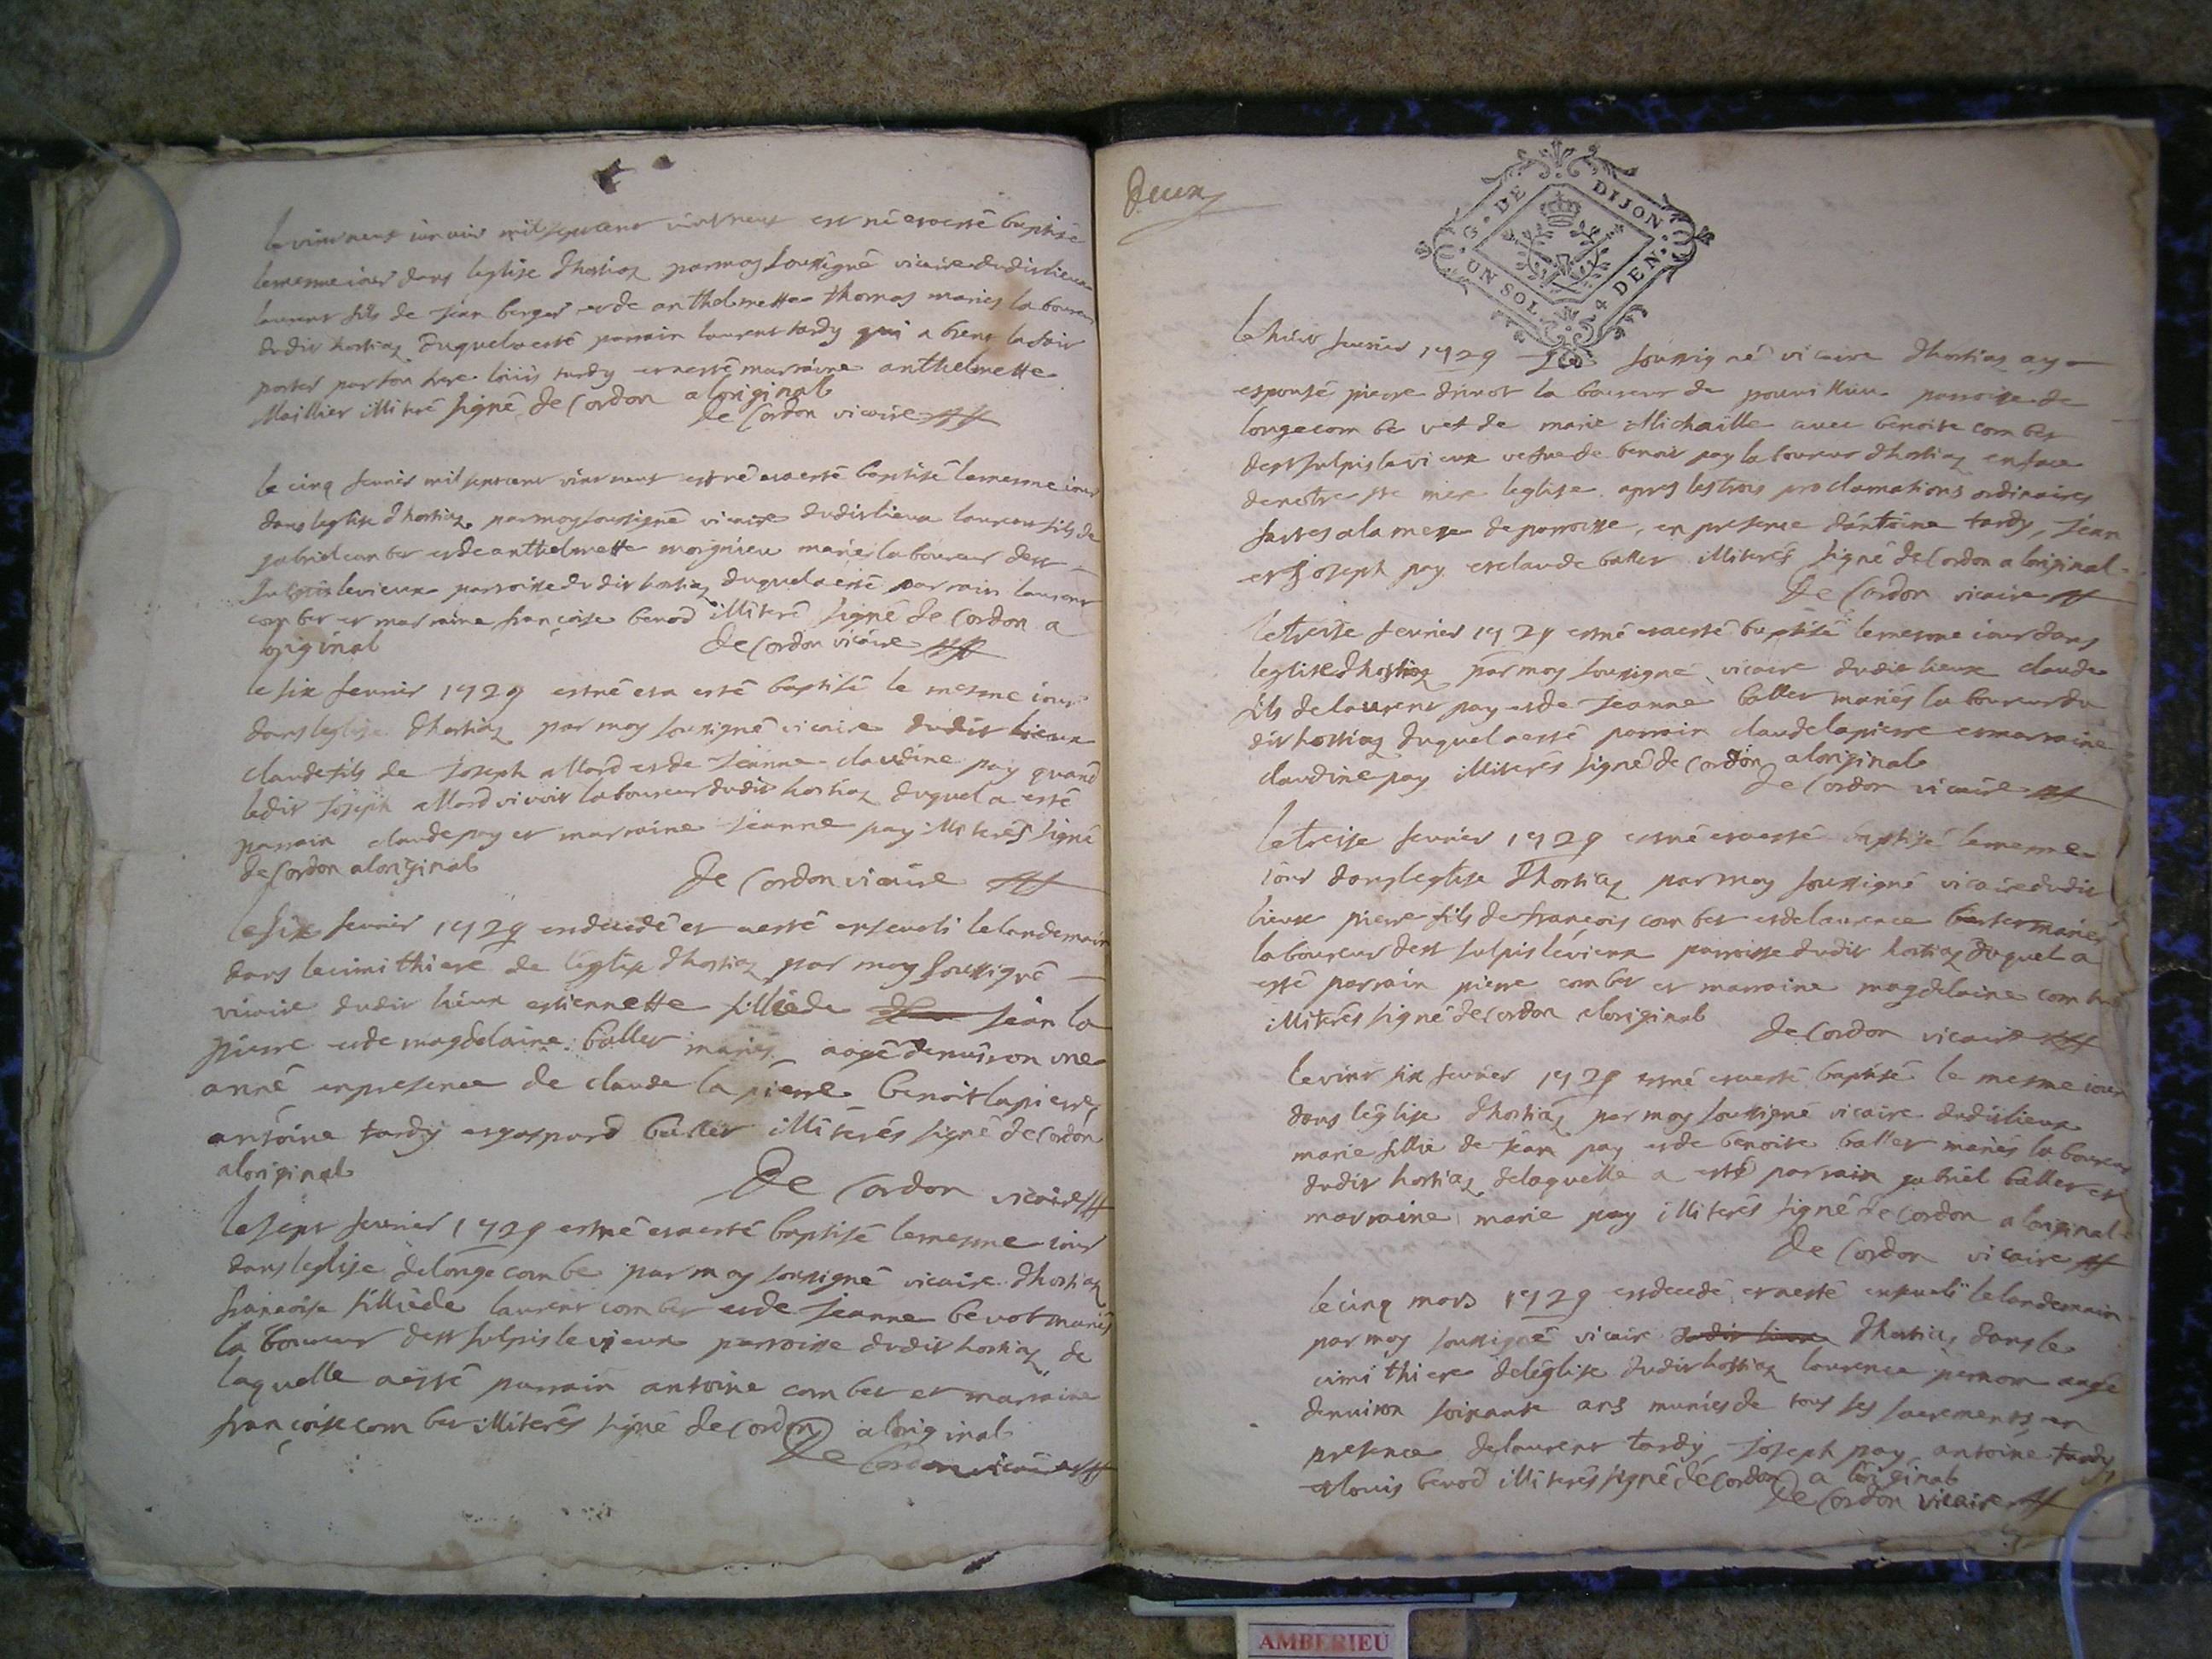 le vint neuf janvier mil sept cent vint neuf est né et a esté baptisé
le mesme iour dans leglise dhostiaz par moy soussigné vicaire dudit lieux
laurent fils de jean berger et de anthelmette thomas mariés laboureur
dudit hostiaz duquel a esté parrain laurent tardy qui a
porter par son frere loüis tardy et a esté marraine anthelmette
Maillier illiteré signé de Cordon a loriginal
de Cordon vicaire
le cinq fevrier mil sept cent vint neuf est né et a esté baptisé le mesme iour
dans leglise dhostiaz par moy soussigné vicaire dudit lieux laurent fils de
gabriel combet et de anthelmette mariés laboureur de st
sulpis levieux parroisse dudit hostiaz duquel a esté parrain laurent
combet et marraine françoise benod illiteré signé de Cordon a
loriginal
de Cordon vicaire
le six fevrier 1729 est né et a esté baptisé le mesme iour
dans leglise dhostiaz par moy soussigné vicaire dudit lieux
claude fils de joseph allard et de jeanne claudine pay quand
ledit joseph allard vivoit laboureur dudit hostiaz duquel a esté
parrain claude pay et marraine jeanne pay illiterés signé
de Cordon a loriginal
de Cordon vicaire
le six fevrier 1729 est decedé et a esté enseveli le landemain
dans le cimithiere de leglise dhostiaz par moy soussigné
vicaire dudit lieux estiennette fillie de jean la
pierre et de magdelaine ballet mariés aagé denviron une
anné en presence de claude la pierre benoit lapierre,
antoine tardy et gaspard ballet illiterés signé de Cordon
a loriginal
De Cordon vicaire
le sept fevrier 1729 est né et a esté baptisé le mesme iour
dans leglise de longecombe par moy soussigné vicaire dhostiaz
francoise fillie de laurent combet et de jeanne benod mariés
laboureur de st sulpis le vieux parroisse dudit hostiaz de
laquelle a esté parrain antoine combet et marraine
françoise combet illiterés signé de Cordon a loriginal
De Cordon vicaire
Deux
G. DE DIJON
UN SOL 4 DEN.
le huit fevrier 1729 soussigné vicaire dhostiaz ay
espousé pierre laboureur de parroisse de
longecombe vef de marie Michaille avec benoite combet
de st sulpis le vieux vefve de benoit pay laboureur dhostiaz en face
de nostre ste mere leglise apres les trois proclamations ordinaires
faites a la messe de parroisse, en presence dantoine tardy, jean
et joseph pay et claude ballet illiterés signé de Cordon a loriginal
De Cordon vicaire
le treise fevrier 1729 est né et a esté baptisé le mesme iour dans
leglise dhostiaz par moy soussigné vicaire dudit lieux claude
fils de laurent pay et de jeanne ballet mariés laboureur du
dit hostiaz duquel a esté parrain claude lapierre et marraine
claudine pay illiterés signé de Cordon a loriginal
De Cordon vicaire
le treise fevrier 1729 est né et a esté baptisé le mesme
iour dans leglise dhostiaz par moy soussigné vicaire dudit
lieux pierre fils de françois combet et de laurence mariés
laboureur de st sulpis le vieux parroisse dudit hostiaz duquel a
esté parrain pierre combet et marraine magdelaine combet
illiterés signé de Cordon a loriginal
de Cordon vicaire
le vint six fevrier 1729 est né et a esté baptisé le mesme iour
dans léglise dhostiaz par moy soussigné vicaire dudit lieux
marie fillie de jean pay et de benoite ballet mariés laboureur
dudit hostiaz delaquelle a esté parrain gabriel ballet et
marraine marie pay illiterés signé de Cordon a loriginal
De Cordon vicaire
le cinq mars 1729 est decedé et a esté enseveli le landemain
par moy soussigné vicaire dudit lieux dhostiaz dans le
cimithiere de leglise dudit hostiaz laurence aagé
denviron soixante ans muniés de tous ses sacrements en
presence de laurent tardy, joseph pay antoine tardy
et louis benod illiterés signé de Cordon a loriginal
De Cordon vicaire
AMBERIEU